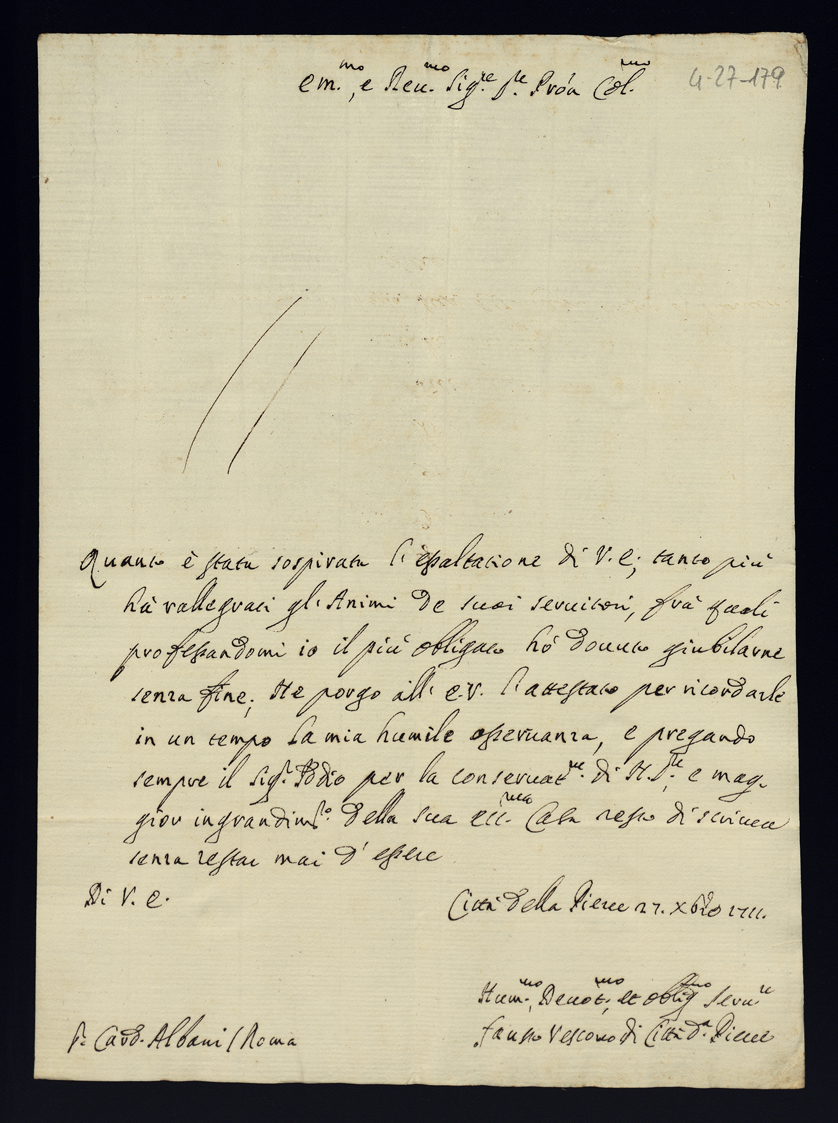 Em.mo, e Reu.mo Sig.re P.re Prõn Col.mo
4-27-179
Quanto è stata sospirata l'esaltatione di V. E; tanto più
hà rallegrati gl'Animi de suoi seruitori, frà quali
professandomi io il più obligato hò douuto giubilarne
senza fine; Ne porgo all' E.V. l'attestato per ricordarle
in un tempo la mia humile osseruanza, e pregando
sempre il Sig.r Iddio per la conseruat.ne di N. S.re, e mag-
gior ingrandim.to della sua ecc.ma Casa resto di scriuere
senza restar mai d'essere
Di V. E.
Città della Pieue 27. Xbre 1711.
Hum.mo, Deuot.mo, et oblig.mo Seru.re
Fausto Vescouo di Città d.a Pieue
S.r Card. Albani / Roma